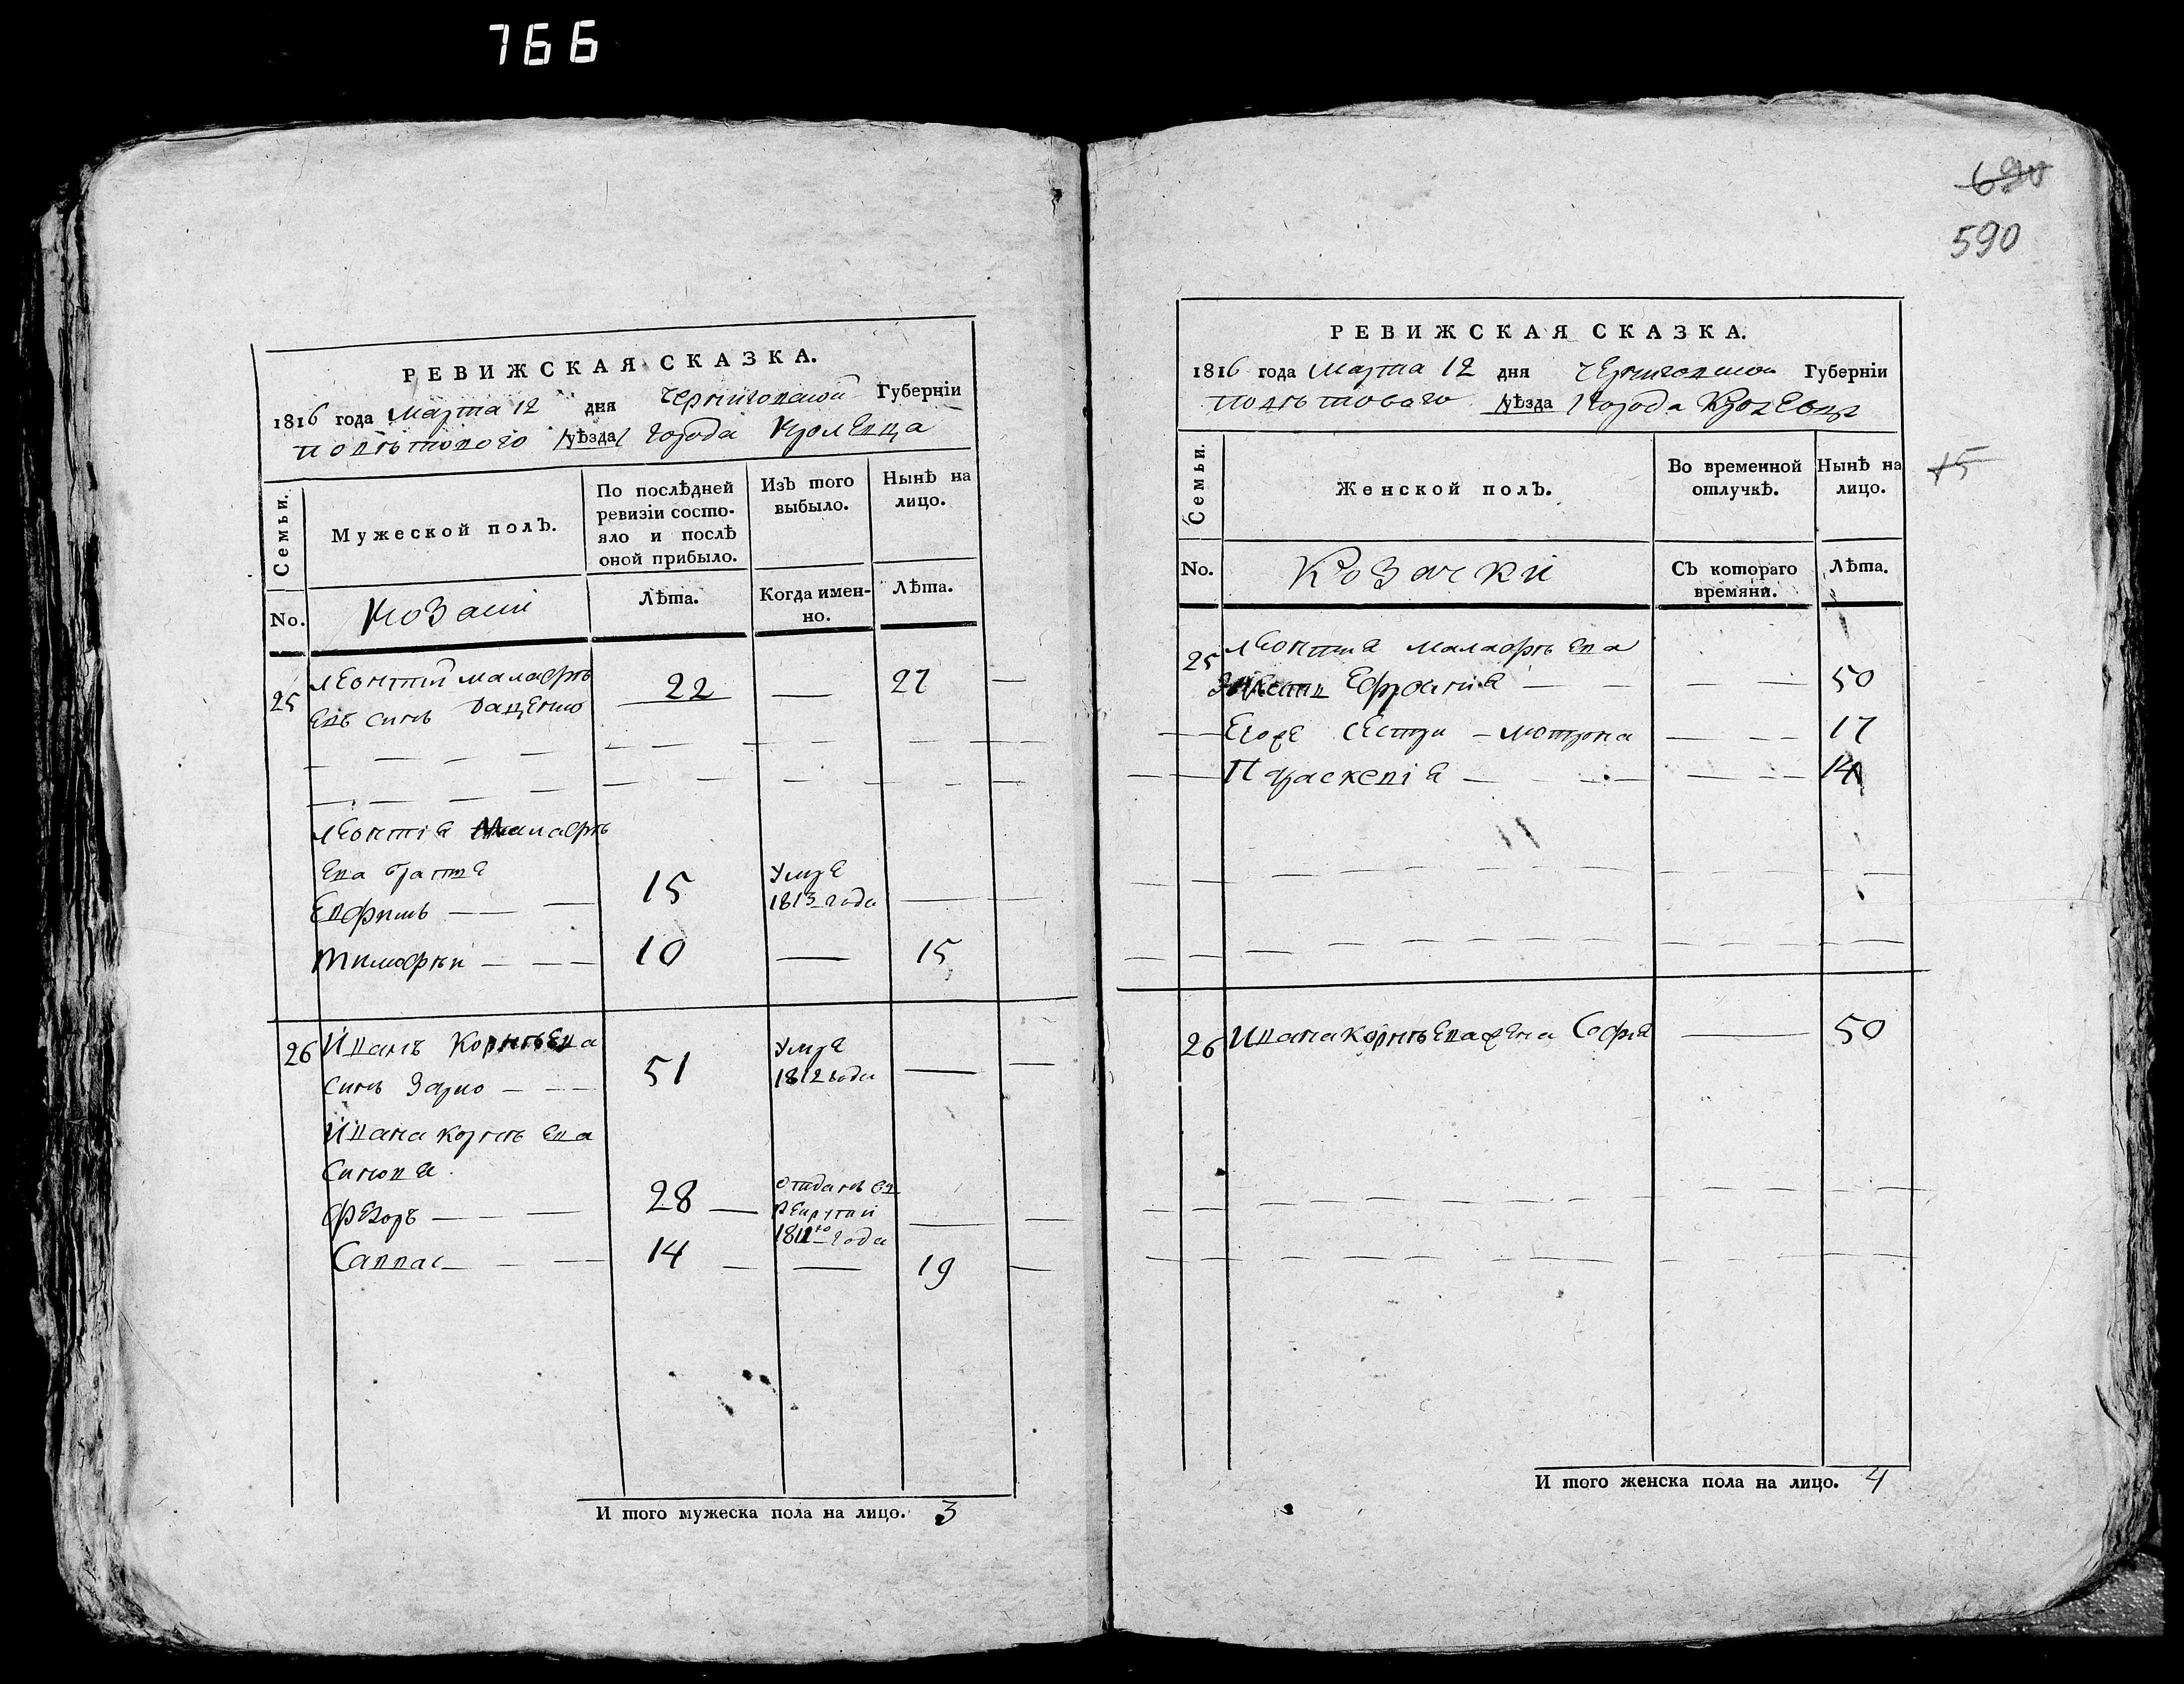 766
690
590
РЕВИЖСКАЯ СКАЗКА.
1816 года Марта 12 дня Черниговской Губерніи
Повѣтового уѣзда города Кролевца
Семьи.
Мужеской полъ.
По послѣдней ревизіи состояло и послѣ оной прибыло.
Изъ того выбыло.
Нынѣ на лицо.
No.
Козаки
Лѣта.
Когда именно.
Лѣта.
25 Леонтий Малафѣ
евъ синъ Даценко 22 — 27
Леонтія Малафѣ
ева братья
Евфимъ — — 15 Умре 1813 года —
Тимофѣй — — 10 — 15
26 Иванъ Корнѣева
синъ Заико — — 51 Умре 1812 года —
Ивана Корнѣева
Синовя
Федоръ — — 28 — Отданъ въ рекруты 1811го года —
Саввас — — 14 — — 19
И того мужеска пола на лицо. 3
РЕВИЖСКАЯ СКАЗКА.
1816 года Марта 12 дня Черниговской Губерніи
Повѣтоваго уѣзда Города Кролевца
15
Семьи.
Женской полъ.
Во временной отлучкѣ.
Нынѣ на лицо.
No.
Козачки
Съ котораго времяни.
Лѣта.
25 Леонтия Малафѣева
Ефросиния — — — 50
Егоже сестри — Мотрона — — — 17
Параскевія — — — 14
26 Ивана Корнѣева жена Софія — 50
И того женска пола на лицо. 4